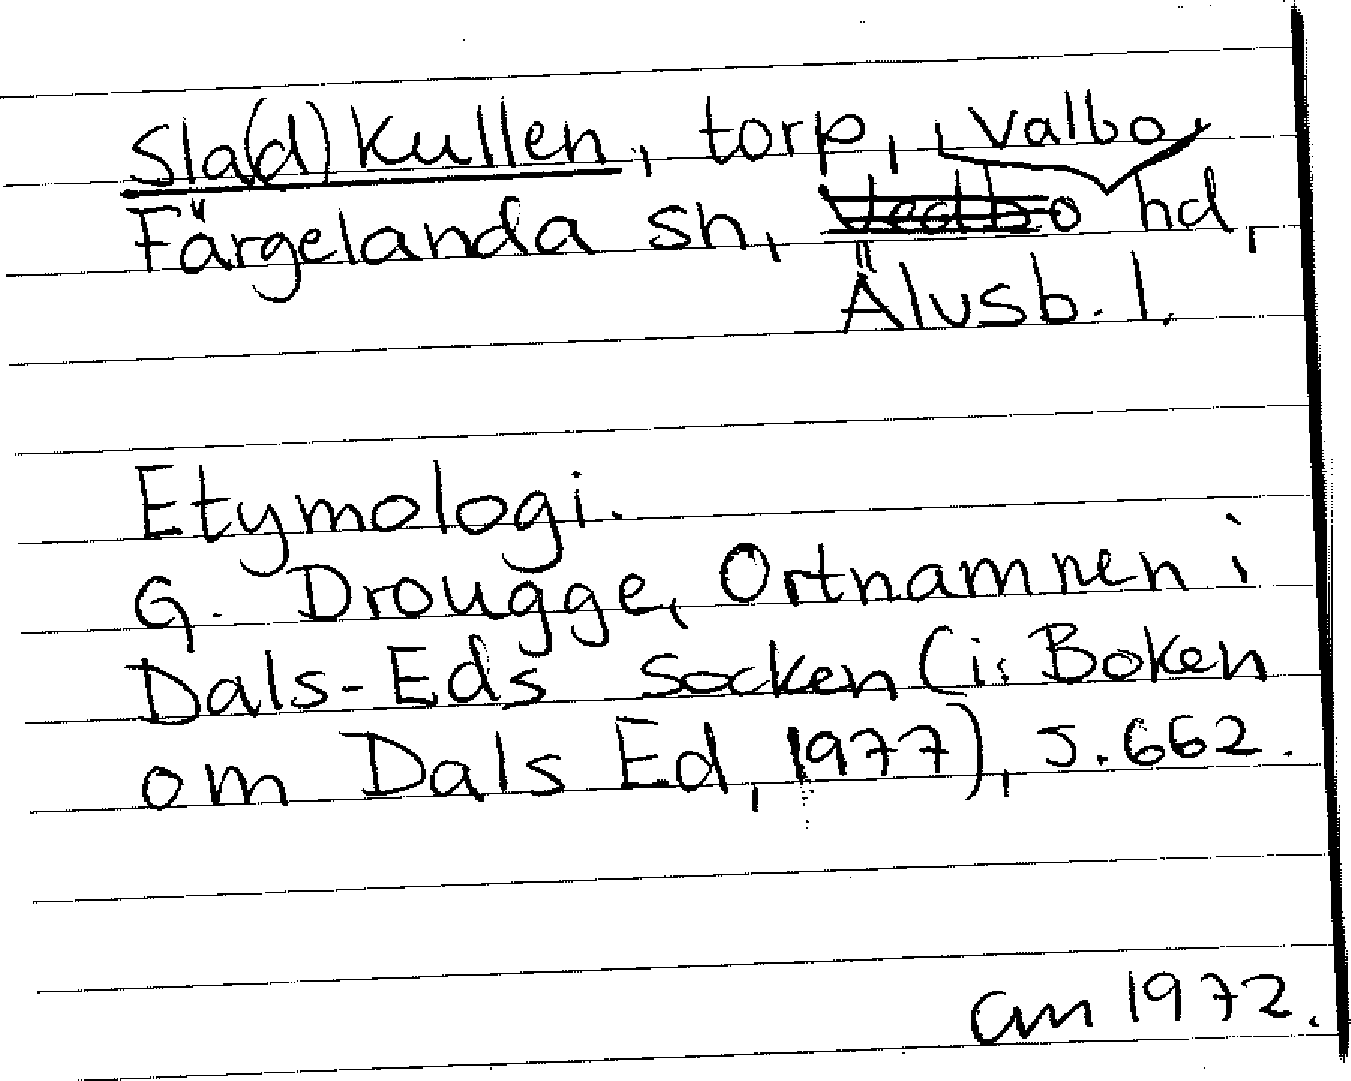 Sla(d)kullen, torp, Valbo
Färgelanda sn, Vedbo hd,
Älvsb. l.
Etymologi.
G. Drougge, Ortnamnen i
Dals-Eds socken (i: Boken
om Dals Ed, 1977), s. 662.
am 1972.